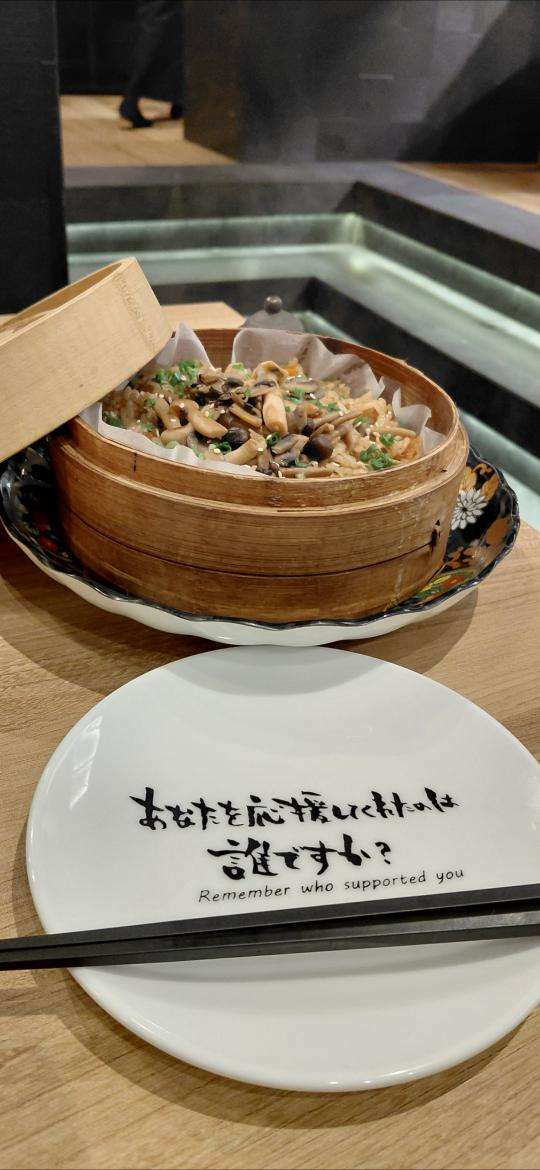 あなたを応援してくれたのは
誰ですか?
Remember who supported you